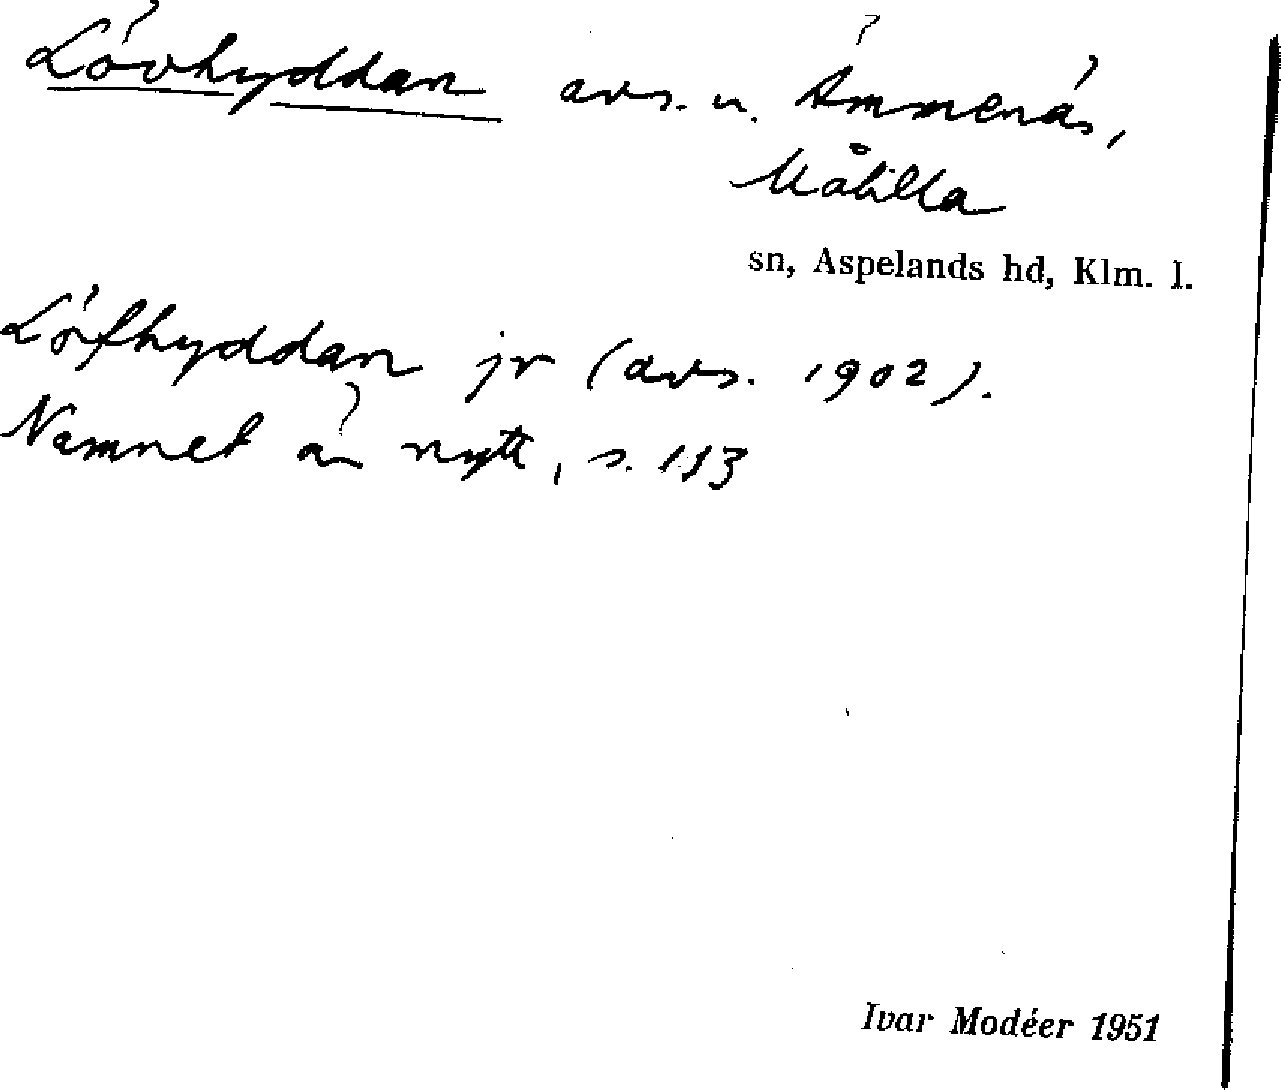 Lövhyddan avs. u. Ämmenäs,
Målilla
sn, Aspelands hd, Klm. l.
Löfhyddan jr (avs. 1902).
Namnet är nytt, s. 113
Ivar Modéer 1951